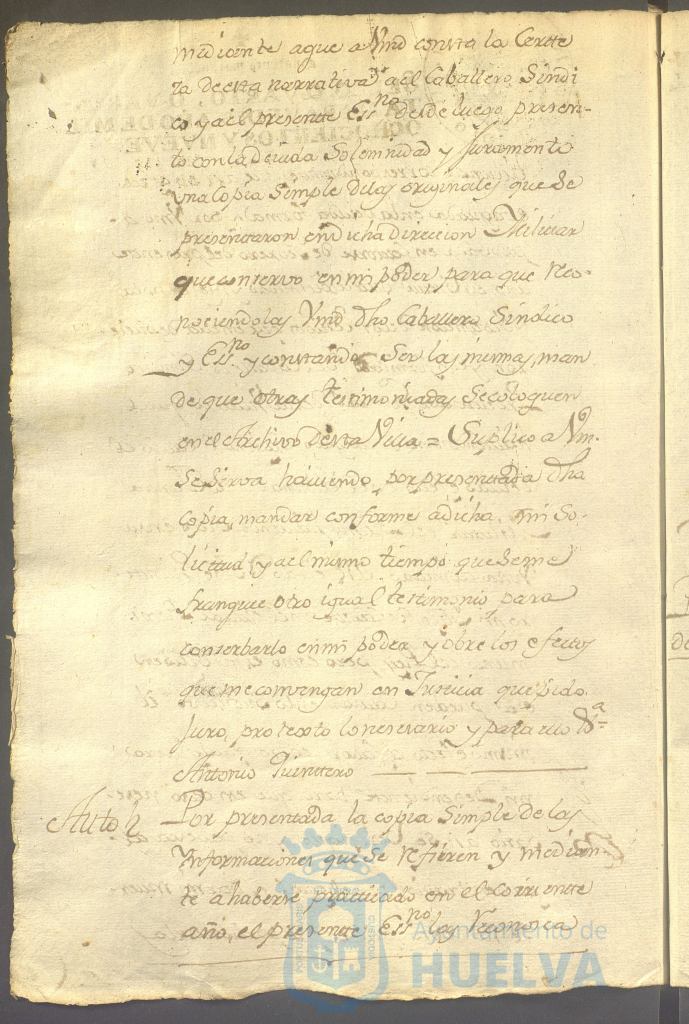 mediante aque a Vmd consta la Certe
za de esta narrativa, y a el Caballero Sindi
co y a el presente Essno desde luego presen-
to con la devida Solemnidad y Juramento
una Copia Simple delas originales que se
presentaron en dicha direccion Militar
que conservo en mi poder para que reco-
nociendolas Vmd dho Caballero Sindico
y Essno y constando Ser las mismas, man
de que otras testimoniadas Secoloquen
en el Archivo de esta Villa = Suplico a Vm.
Se Sirva haviendo por presentada dha
copia, mandar conforme adicha mi So-
licitud, y a el mismo tiempo que Seme
franquee otro igual testimonio para
conserbarlo en mi poder y obre los efectos
que me convengan en Justicia que pido
Juro, protexto lo nesesario y para ello Va
Antonio Quintero
Auto
Por presentada la copia Simple de las
Ynformaciones que Se refieren y median-
te a haberse practicado en el corriente
año, el presente Essno las reconosca
Ayuntamiento de
HUELVA